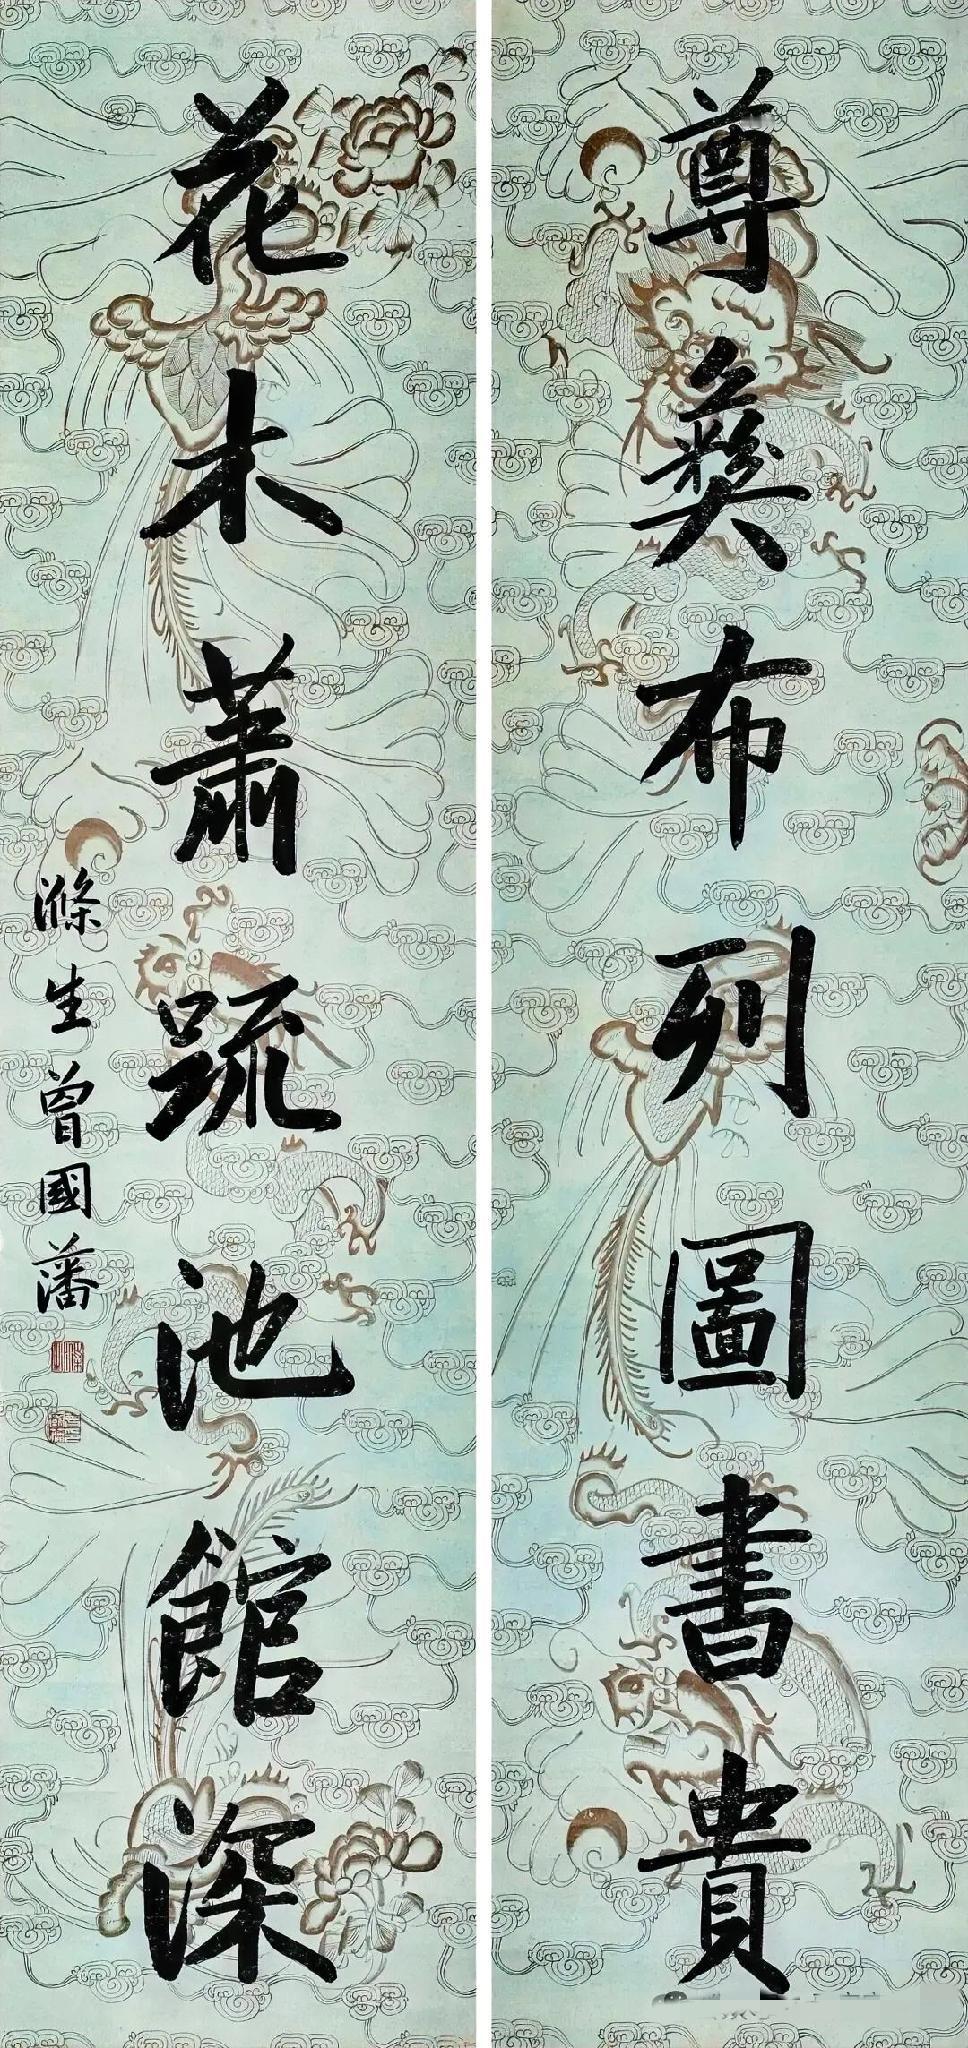 尊彝布列圖書貴
花木蕭疏池館深
滌生曾國藩